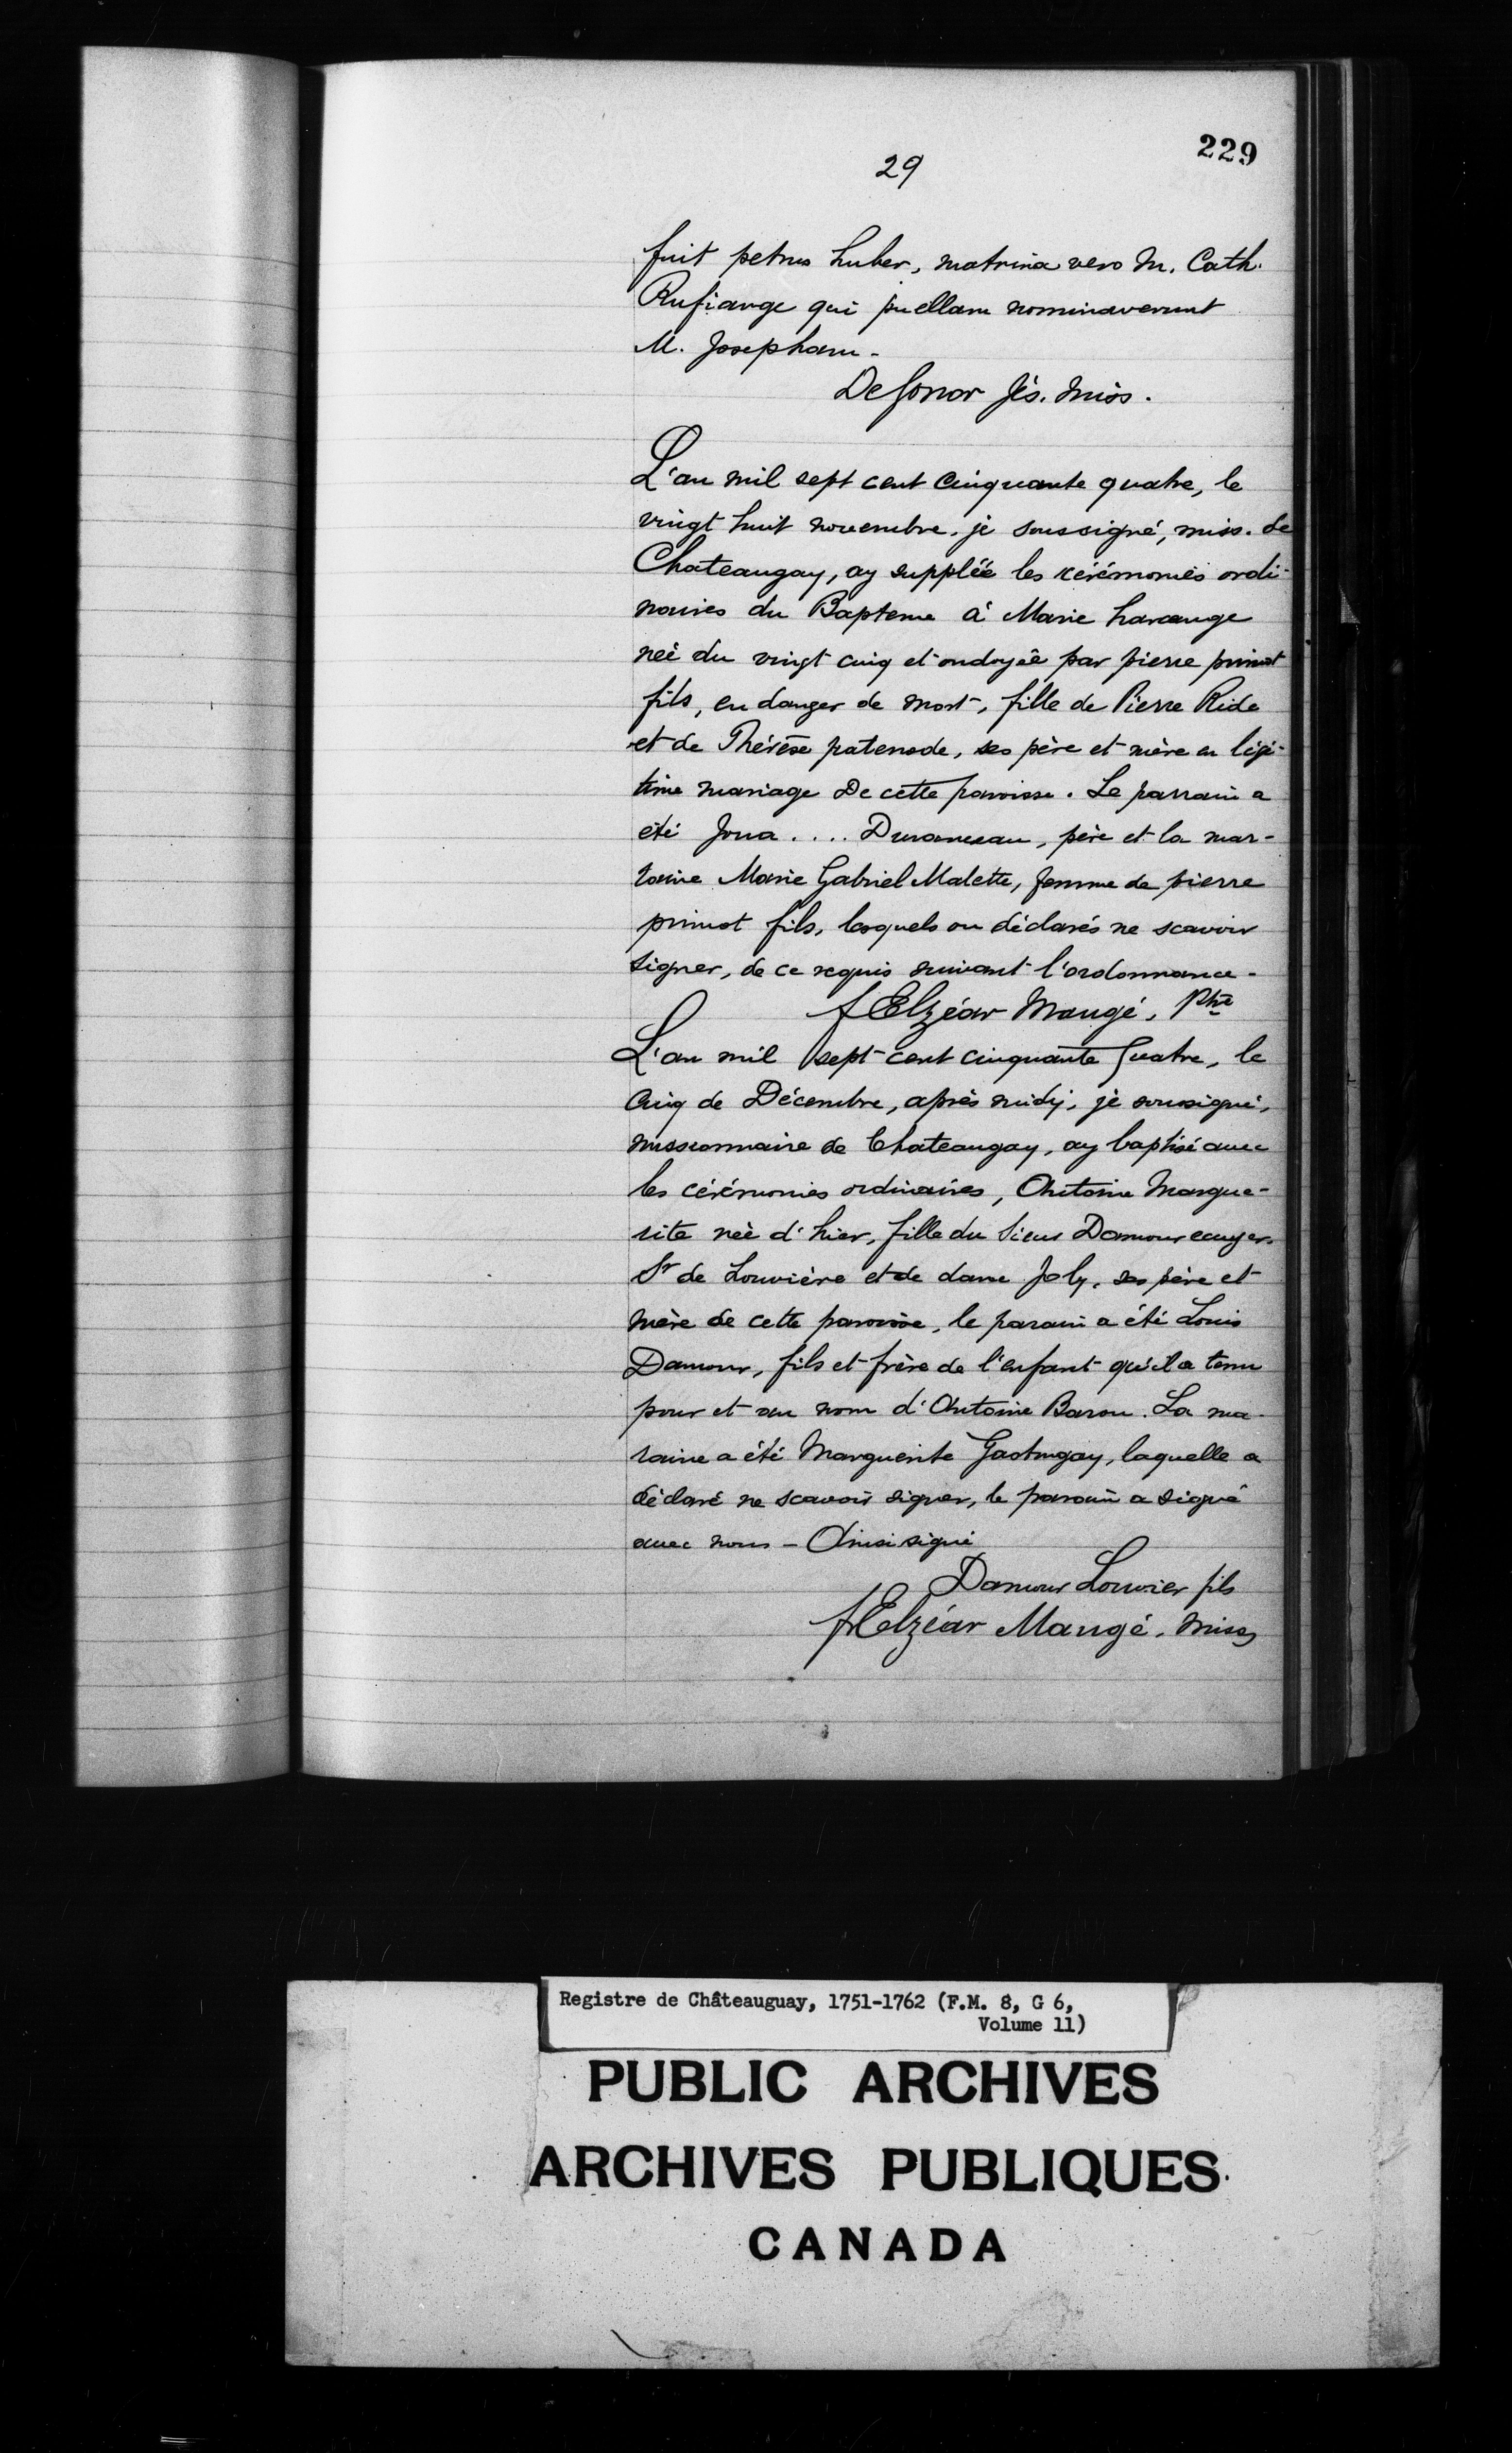 229
29
fuit petrus huber, matrina vero M. Cath.
Rufiange qui puellam nominaverunt
M. Josepham -
De Gonor Jés. miss.
L'an mil sept cent cinquante quatre, le
vingt huit novembre, je soussigné, miss. de
Chateaugay, ay supplée les cérémonies ordi-
naires du Bapteme à Marie harauge
née du vingt cinq et ondoyée par pierre primot
fils, en danger de mort, fille de Pierre Ride
et de Thérèse patenode, ses père et mère en légi-
time mariage De cette paroisse. Le parrain a
été Joua .... Duranceau, père et la mar-
raine Marie Gabriel Malette, femme de pierre
primot fils, lesquels on déclarés ne scavoir
signer, de ce requis suivant l'ordonnance.
f Elzéar Maugé, Ptre
L'an mil sept cent cinquante Quatre, le
cinq de Décembre, après midy, je soussigné,
missionnaire de Chateaugay, ay baptisé avec
les cérémonies ordinaires, Antoine Margue-
rite née d'hier, fille du Sieur Damour ecuyer,
Sr de Louvière et de dame Joly, ses père et
mère de cette paroisse, le parain a été Louis
Damour, fils et frère de l'enfant qu'il a tenu
pour et au nom d'Antoine Baron. La ma-
raine a été Marguerite Gastugay, laquelle a
déclaré ne scavoir signer, le parain a signé
avec nous - Ainsi signé
Damour Louvier fils
fr Elzéar Maugé, miss
Registre de Châteauguay, 1751-1762 (F.M. 8, G 6,
Volume 11)
PUBLIC ARCHIVES
ARCHIVES PUBLIQUES
CANADA